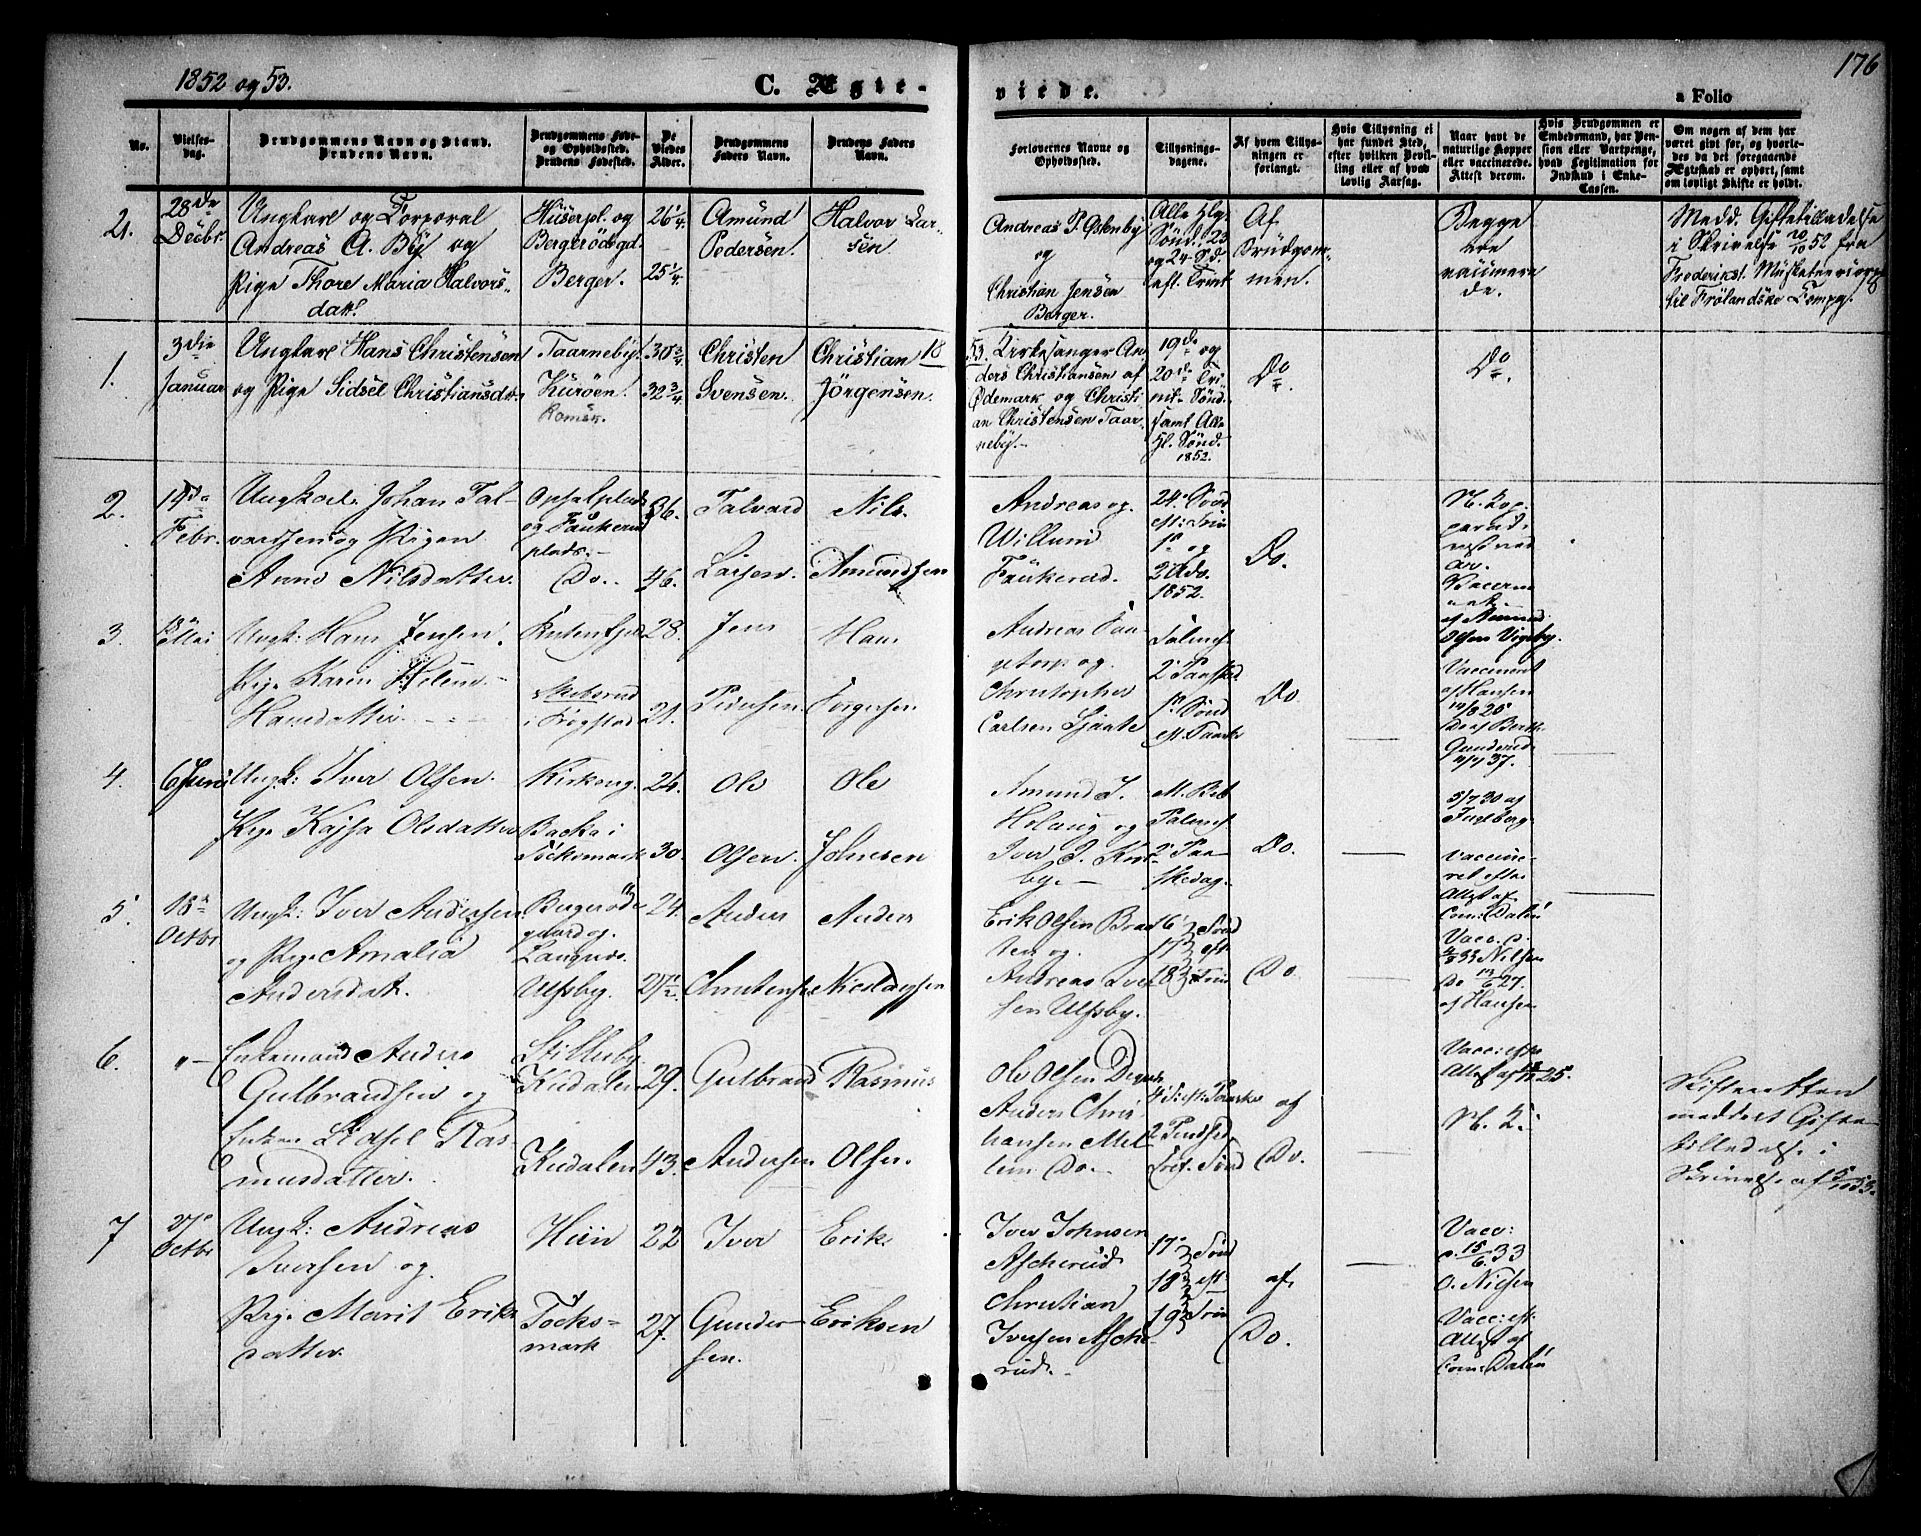 1852 og 53.
C. Ægte-
viede.
a Folio
176
No.
Vielses-
dag.
Brudgommens Navn og Stand.
Brudens Navn.
Brudgommens Føde-
og Opholdssted.
Brudens Fødested.
De
Viedes
Alder.
Brudgommens
Faders Navn.
Brudens Faders
Navn.
Forlovernes Navne og
Opholdssted.
Tillysnings-
dagene.
Af hvem Tillys-
ningen er
forlangt.
Hvis Tillysning ei
har fundet Sted,
efter hvilken Bevil-
ling eller af hvad
lovlig Aarsag.
Naar havt de
naturlige Kopper
eller vaccinerede.
Attest derom.
Hvis Brudgommen er
Embedsmand, har Pen-
sion eller Vartpenge,
hvad Legitimation for
Indskud i Enke-
Cassen.
Om nogen af dem har
været gift før, og hvorle-
des da det foregaaende
Ægteskab er ophørt, samt
om lovligt Skifte er holdt.
21.
28de
Decbr.
Ungkarl og Corporal
Andreas A. By og
Pige Thore Maria Halvors-
datt.
Huserpl. og
Bergerødegd.
Berger.
26 1/4
25 1/4
Amund
Pedersen.
Halvor Lar-
sen.
Andreas P. Ostenby
og
Christian Jensen
Berger.
Alle Hlg.
Sønd. 23
og 24 S. d.
eft. Trint
Af
Brudgom-
men.
Begge
ere
vaccinere
de.
Medd. Giftetilladelse
i Skrivelse 20/10 52 fra
Frederikst. Musketeercorps
til Frølandske Compg. 18
1.
3die
Januar
Ungkarl Hans Christensen
og Pige Sidsel Christiansdtr.
Taarneby.
Kurøen.
Romsk.
30 3/4
32 3/4
Christen
Svensen.
Christian 18
Jørgensen.
53. Kirkesanger An-
ders Christiansen af
Ødemark og Christi-
an Christensen Taar-
neby.-
19de og
20de Tri-
nit. Sønd.
samt Alle
Hl. Sønd.
1852.
Do.
Do.
2.
19de
Febr.
Ungkarl Johan Tal-
vardsen og Pigen
Anne Nilsdatter.
Opsalplads
og Faukerud
plads.-
Do.
36.
46.
Talvard
Larsen.
Nils
Amundsen
Andreas og
Willum
Faukerud.
24. Sønd
eft: Trin
1 og
2 Adv.
1852.
Do.
N. Kop.
ar.
Vaccin
3.
Mai
Ungk: Hans Jensen.
Pige Karen Helene
Hansdatter.
i Trøgstad
28.
21.
Jens
Pedersen
Hans
Torgersen
Andreas
og
Christopher
Carlsen
Palmes:
2 Paaskd
1 Sønd
eft. Paaske
Do
Vaccineret
af Hansen
19/8 25
Gunderud
37.
4.
6 Juni
Ungk: Iver Olsen.
Pige Kajsa Olsdatter
Kirkeng.
Backa i
Töcksmark
24.
30.
Ole
Olsen.
Ole
Johnsen
Amund J.
Holaug og
Iver J. Kors-
bye.-
Palmes:
2 Paa-
skedag.
Do.
5/7 30 af
Vaccine-
ret efter
Attest af
Com: Dalin
5.
18
Octbr
Ungk: Iver Andersen
og Pige Amalia
Andersdatt.
Bergerøde
gaard og
Langnæs.
Ulfsby.
24.
27 1/2
Anders
Christensen
Anders
Nicolaysen
Erik Olsen Bra-
ten og
Andreas Iver-
sen Ulfsby.
16 Sønd
17 eft
18 Trin
Do.
Vacc. d.
33 Nilsen
Do 13/6 27.
af Hansen
6.
"-
Enkemand Anders
Gulbrandsen og
Enken Sidsel Ras-
musdatter.
Stilleby
Kudalen
Kudalen
29.
43.
Gulbrand
Andersen
Rasmus
Olsen.
Ole Olsen
Anders Chris-
tiansen Mel-
lem Do.
4 S. eft: Paaske
2 Pintsed
Tref. Sønd
af
Do.
Vacc: efter
Attest af 25.
N. K.
Skifteretten
meddelt Gifte-
tilladelse i
Skrivelse af 5/10 53.
7
27
Octbr
Ungk: Andreas
Iversen og
Pige Marit Eriks
datter.
Hien
Töcks-
mark
22
27.
Iver
Gunder-
sen.
Erik
Eriksen
Iver Johnsen
Ascherud
Christian
Iversen Asche-
rud.-
17 Sønd
18 eft.
19 Trin
af
Do.
Vacc:
d. 15/6 33
o. Nilsen
Vacc: eft.
Attest af
Com: Dalin